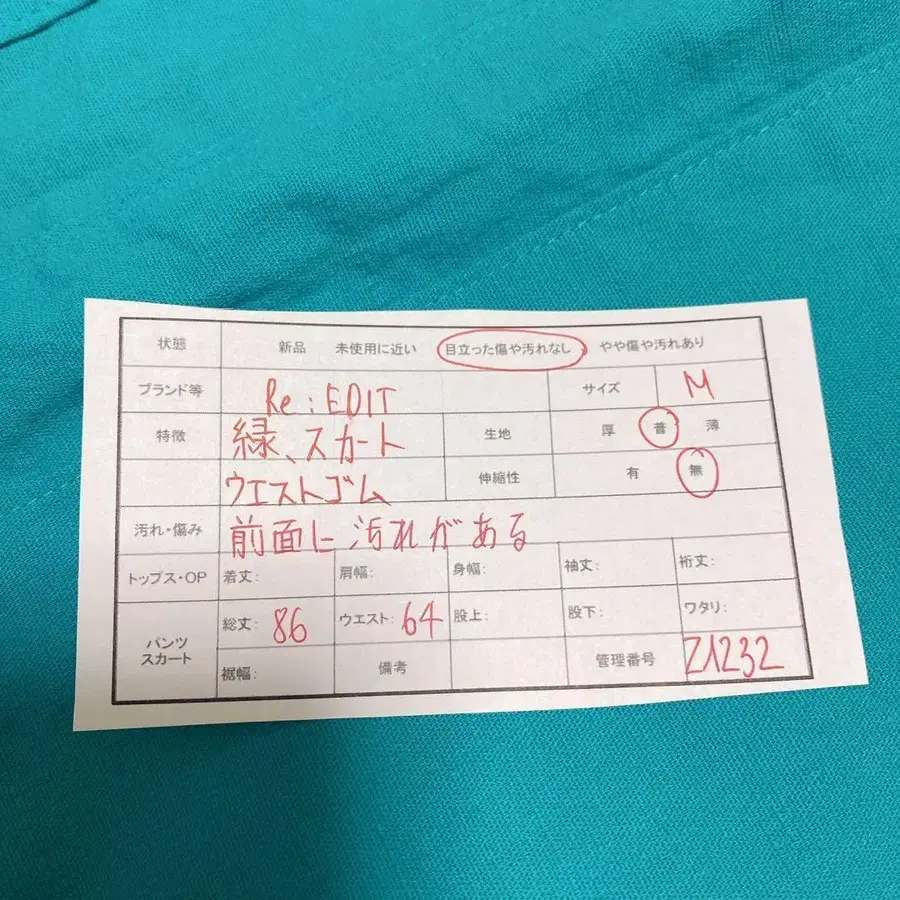 状態 新品 未使用に近い 目立った傷や汚れなし やや傷や汚れあり
ブランド等 Re:EDIT サイズ M
特徴 緑、スカート 生地 厚 普 薄
ウエストゴム 伸縮性 有 無
汚れ・傷み 前面に汚れがある
トップス・OP 着丈: 肩幅: 身幅: 袖丈: 裄丈:
パンツ スカート 総丈: 86 ウエスト: 64 股上: 股下: ワタリ:
裾幅: 備考 管理番号 Z1232